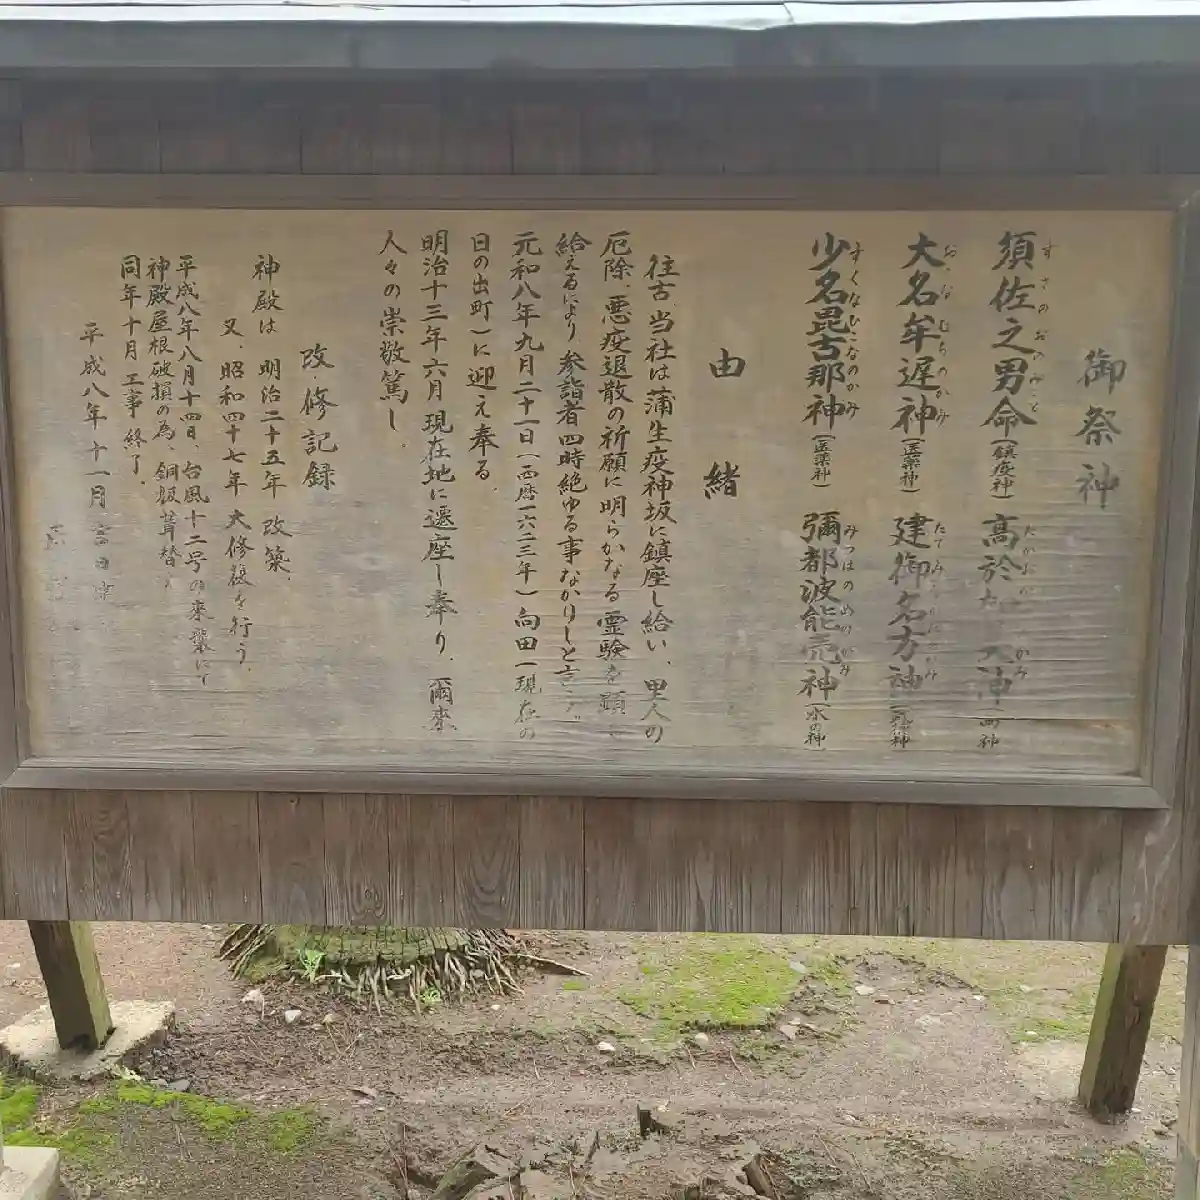 御祭神
須佐之男命(鎮疫神) 高於
すさのおのみこと
大名牟遅神(医薬神) 建御名方神
おおなむちのかみ
少名毘古那神(医薬神) 彌都波能売神(水の神)
すくなひこなのかみ みつはのめのかみ
由緒
往古、当社は蒲生疫神坂に鎮座し給い、里人の
厄除、悪疫退散の祈願に明らかなる霊験を顕
給えるにより参詣者四時絶ゆる事なかりしと言う。
元和八年九月二十一日(西暦一六二三年)向田(現在の
日の出町)に迎え奉る。
明治十三年六月現在地に遷座し奉り、爾来
人々の崇敬篤し。
改修記録
神殿は 明治二十五年 改築、
又、昭和四十七年 大修繕を行う。
平成八年八月十四日、台風十二号の来襲にて
神殿屋根破損の為、銅板葺替
同年十月 工事終了。
平成八年十一月